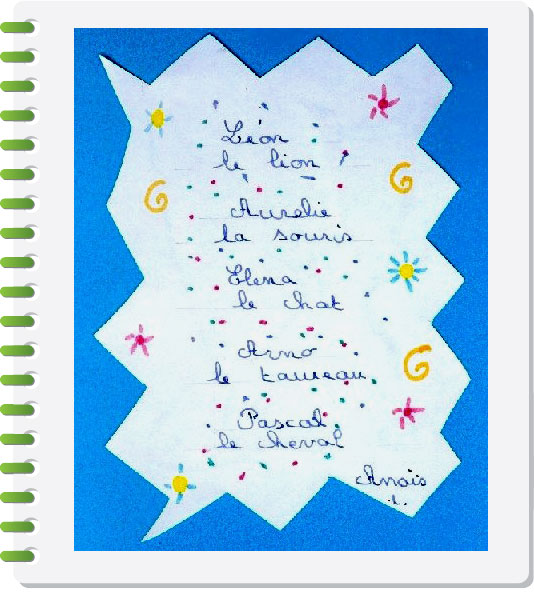 Léon
le lion
Aurelie
la souris
Elena
le chat
Arno
le taureau
Pascal
le cheval
Anaïs